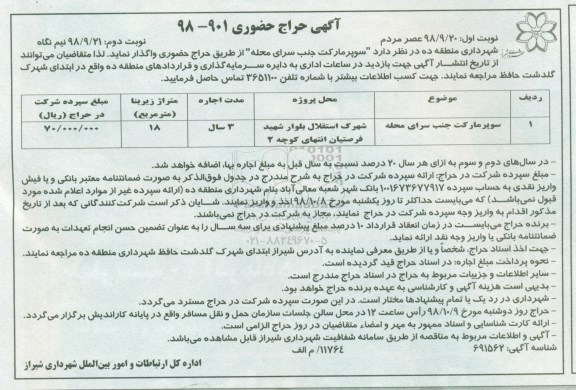 آگهی حراج حضوری ۹۰۱- ۹۸
نوبت اول: ۹۸/۹/۲۰ عصر مردم
نوبت دوم: ۹۸/۹/۲۱ نیم نگاه
شهرداری منطقه ده در نظر دارد "سوپرمارکت جنب سرای محله" از طریق حراج حضوری واگذار نماید. لذا متقاضیان می‌توانند
از تاریخ انتشار آگهی جهت بازدید در ساعات اداری به دایره سرمایه‌گذاری و قراردادهای منطقه ده واقع در ابتدای شهرک
گلدشت حافظ مراجعه نمایند. جهت کسب اطلاعات بیشتر با شماره تلفن ۳۶۵۱۱۰۰ تماس حاصل فرمایید.
ردیف موضوع محل پروژه مدت اجاره متراژ زیربنا (مترمربع) مبلغ سپرده شرکت در حراج (ریال)
۱ سوپرمارکت جنب سرای محله شهرک استقلال بلوار شهید فرستیان انتهای کوچه ۲ ۳ سال ۱۸ ۷۰/۰۰۰/۰۰۰
- در سال‌های دوم و سوم به ازای هر سال ۲۰ درصد نسبت به سال قبل به مبلغ اجاره بها، اضافه خواهد شد.
- مبلغ سپرده شرکت در حراج: ارائه سپرده شرکت در حراج به شرح مندرج در جدول فوق‌الذکر به صورت ضمانتنامه معتبر بانکی و یا فیش
واریز نقدی به حساب سپرده ۱۰۰۱۶۷۳۶۷۷۹۱۷ بانک شهر شعبه معالی‌آباد بنام شهرداری منطقه ده (ارائه سپرده غیر از موارد اعلام شده مورد
قبول نمی‌باشد) که می‌بایست حداکثر تا روز یکشنبه مورخ ۹۸/۱۰/۸ اخذ و واریز نمایند. شایان ذکر است شرکت‌کنندگانی که بعد از تاریخ
مذکور اقدام به واریز وجه سپرده شرکت در حراج نمایند، مجاز به شرکت در حراج نمی‌باشند.
- برنده حراج می‌بایست در زمان انعقاد قرارداد ۱۰ درصد مبلغ پیشنهادی برای سه سال را به عنوان تضمین حسن انجام تعهدات به صورت
ضمانتنامه بانکی یا واریز وجه نقد ارائه نماید.
- جهت اخذ اسناد حراج، شخصاً و یا از طریق معرفی نماینده به آدرس شیراز ابتدای شهرک گلدشت حافظ شهرداری منطقه ده مراجعه نمایند.
- نحوه پرداخت مبلغ اجاره: در اسناد حراج قید گردیده است.
- سایر اطلاعات و جزییات مربوط به حراج در اسناد حراج مندرج است.
- بدیهی است هزینه آگهی و کارشناسی به عهده برنده حراج خواهد بود.
- شهرداری در رد یک یا تمام پیشنهادها مختار است. در این صورت سپرده شرکت در حراج مسترد می‌گردد.
- حراج روز دوشنبه مورخ ۹۸/۱۰/۹ رأس ساعت ۱۲ در محل سالن جلسات سازمان حمل و نقل مسافر واقع در پایانه کاراندیش برگزار می‌گردد.
- ارائه کارت شناسایی و اسناد ممهور به مهر و امضاء متقاضیان در روز حراج الزامی است.
- آگهی و اطلاعات مربوط به مناقصه از طریق سامانه شفافیت شهرداری شیراز قابل مشاهده می‌باشد.
شناسه آگهی: ۶۹۱۵۶۲
۱۱۷۶۴/ م الف
اداره کل ارتباطات و امور بین‌الملل شهرداری شیراز
۰۲۱-۸۸۳۴۹۶۷۰-۵